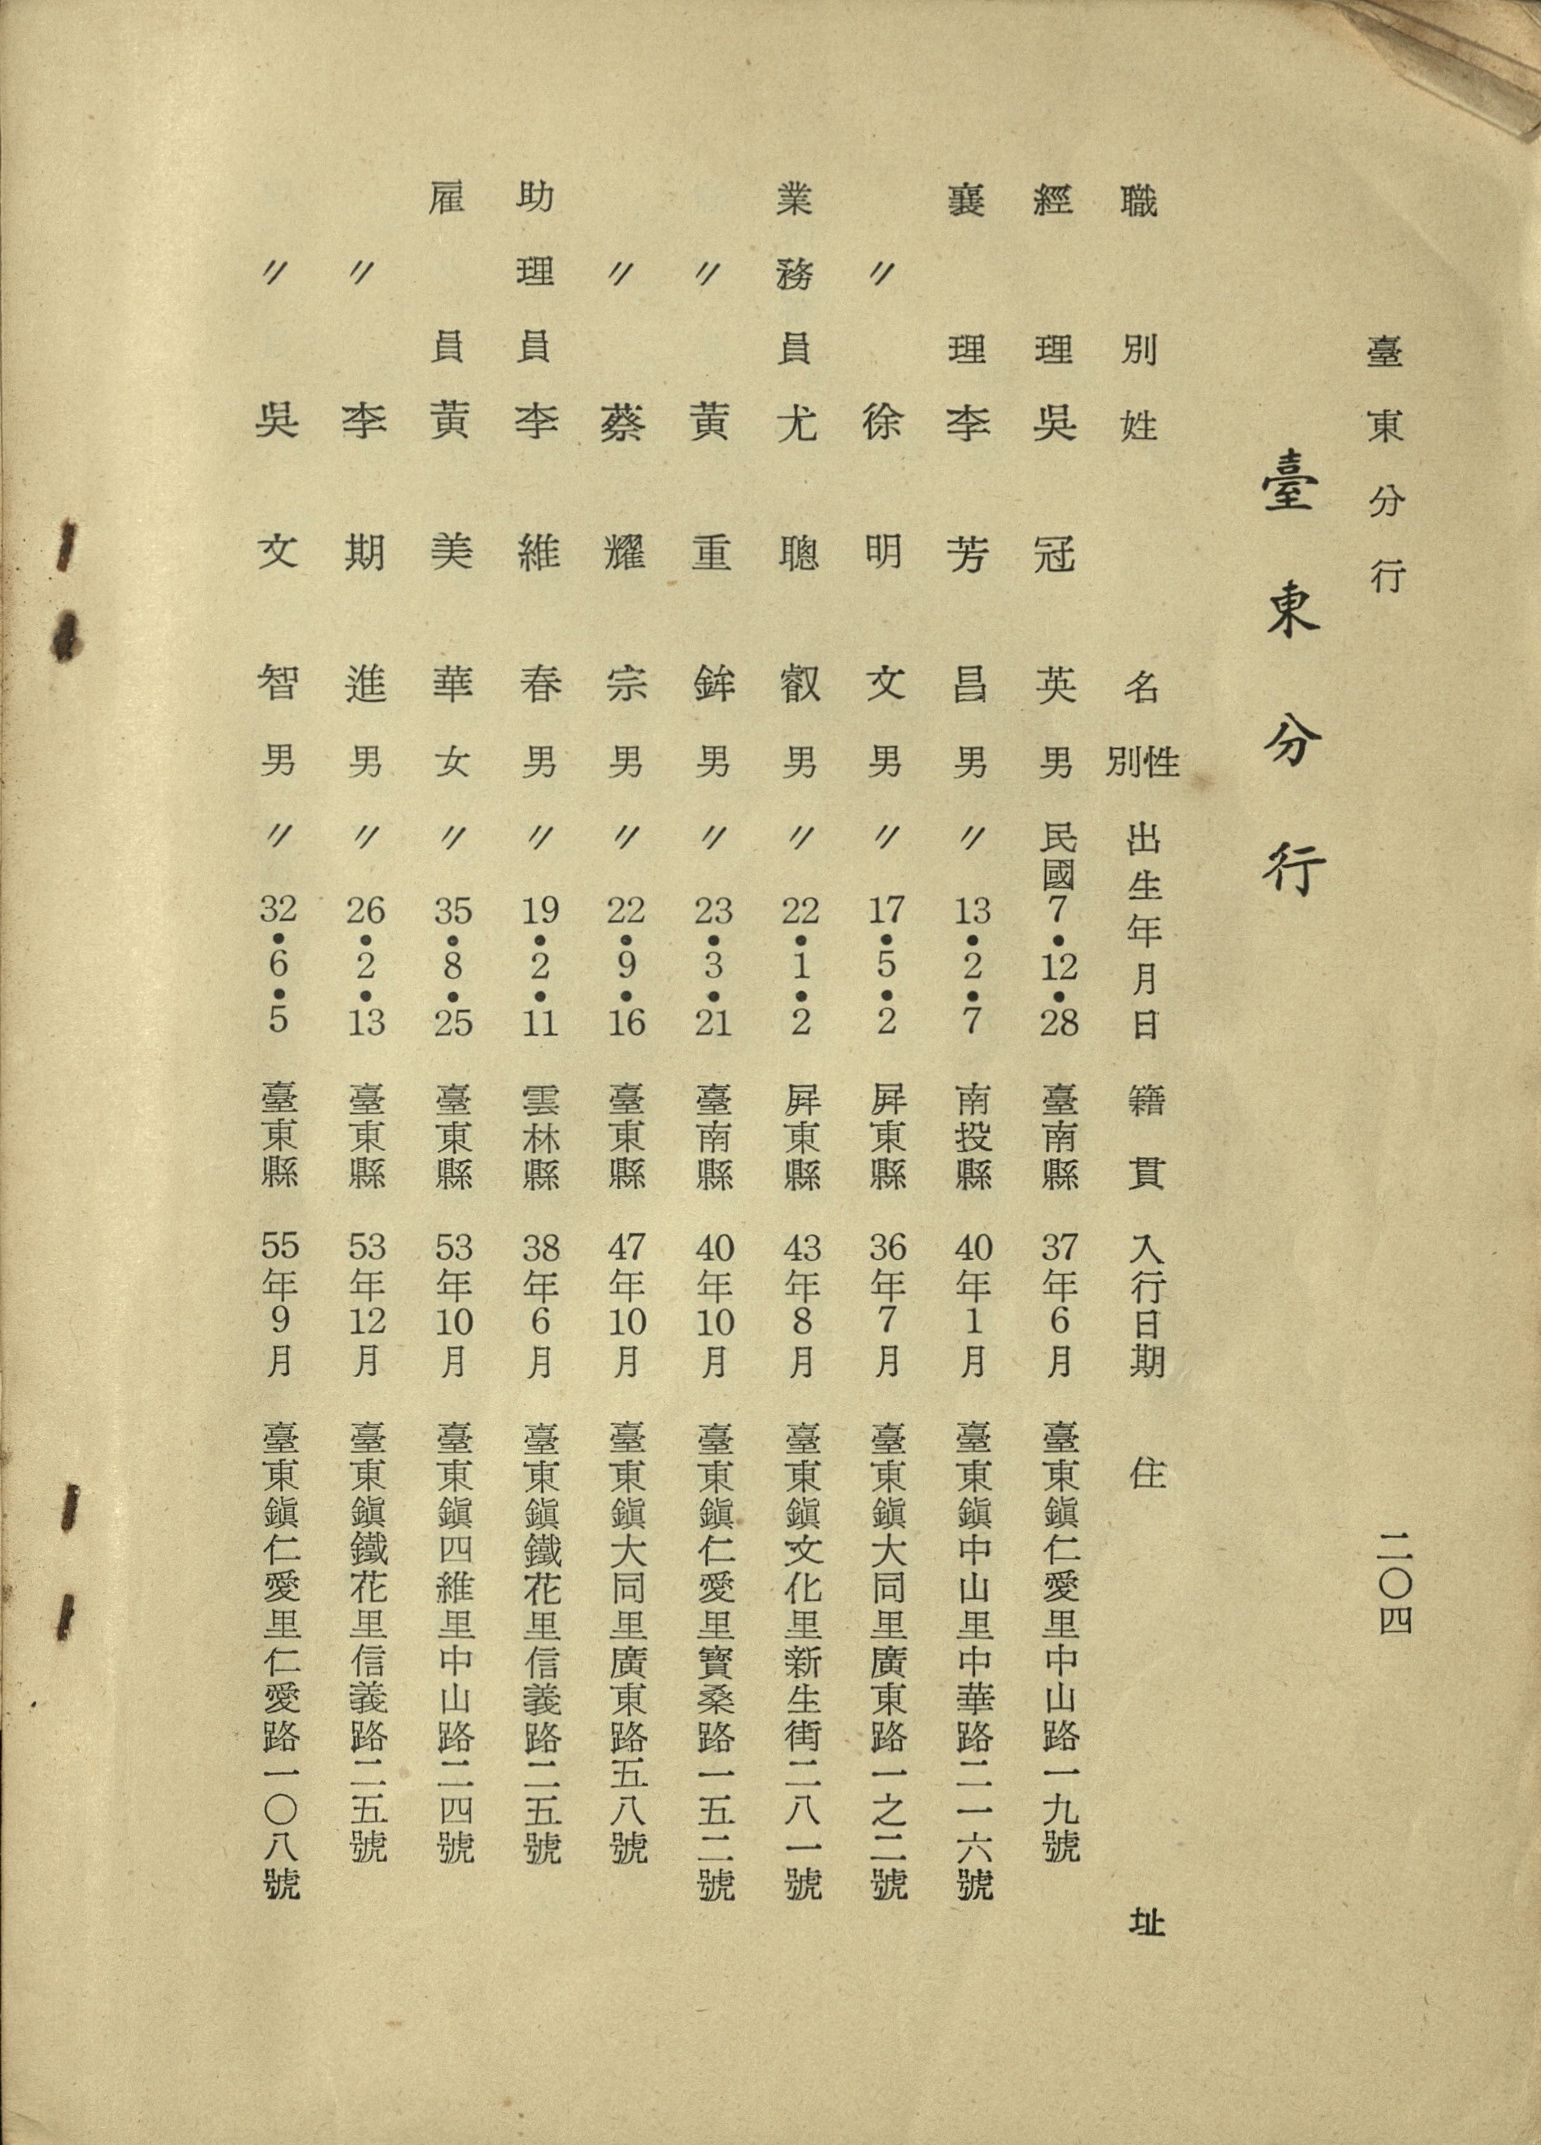 臺東分行
二〇四
臺東分行
職別 姓名 性別 出生年月日 籍貫 入行日期 住址
經理 吳冠英 男 民國7•12•28 臺南縣 37年6月 臺東鎭仁愛里中山路一九號
襄理 李芳昌 男 〃13•2•7 南投縣 40年1月 臺東鎭中山里中華路二一六號
〃 徐明文 男 〃17•5•2 屛東縣 36年7月 臺東鎭大同里廣東路一之二號
業務員 尤聰叡 男 〃22•1•2 屛東縣 43年8月 臺東鎭文化里新生街二八一號
〃 黃重鉾 男 〃23•3•21 臺南縣 40年10月 臺東鎭仁愛里寶桑路一五二號
〃 蔡耀宗 男 〃22•9•16 臺東縣 47年10月 臺東鎭大同里廣東路五八號
助理員 李維春 男 〃19•2•11 雲林縣 38年6月 臺東鎭鐵花里信義路二五號
雇員 黃美華 女 〃35•8•25 臺東縣 53年10月 臺東鎭四維里中山路二四號
〃 李期進 男 〃26•2•13 臺東縣 53年12月 臺東鎭鐵花里信義路二五號
〃 吳文智 男 〃32•6•5 臺東縣 55年9月 臺東鎭仁愛里仁愛路一〇八號